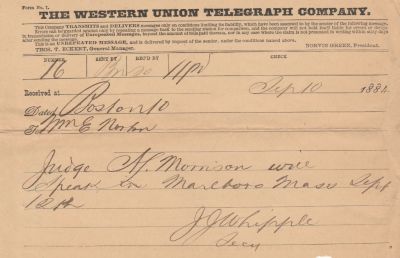 Form No. 1.
THE WESTERN UNION TELEGRAPH COMPANY.
This Company TRANSMITS and DELIVERS messages only on conditions limiting its liability, which have been assented to by the sender of the following message.
Errors can be guarded against only by repeating a message back to the sending station for comparison, and the company will not hold itself liable for errors or delays
in transmission or delivery of Unrepeated Messages, beyond the amount of tolls paid thereon, nor in any case where the claim is not presented in writing within sixty days
after sending the message.
This is an UNREPEATED MESSAGE, and is delivered by request of the sender, under the conditions named above.
THOS. T. ECKERT, General Manager. NORVIN GREEN, President.
NUMBER SENT BY REC'D BY CHECK
16 11 Pd
Received at Sep 10 1884
Dated Boston 10
To Wm E Norton
Judge N. Morrison will
speak in Marlboro Mass Sept
12th
J J Whipple
Secy